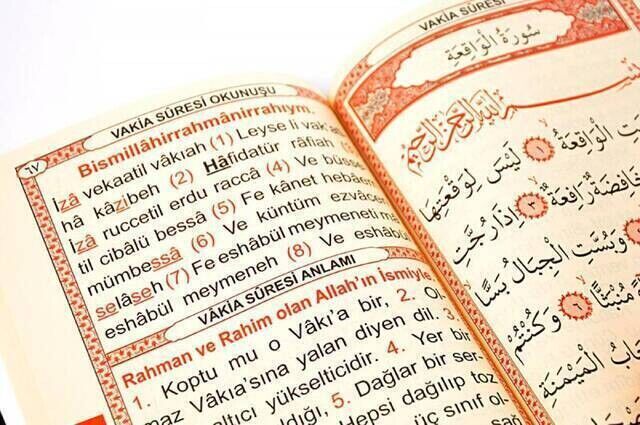 ٦٧
VAKİA SÛRESİ OKUNUŞU
Bismillâhirrahmânirrahıym.
İzâ vekaatil vâkıah (1) Leyse li vak'a
hâ kâzibeh (2) Hâfidatür râfiah (3)
İzâ ruccetil erdu raccâ (4) Ve büsse
til cibâlü bessâ (5) Fe kânet hebâen
mümbessâ (6) Ve küntüm ezvâcen
selâseh (7) Fe eshâbül meymeneti ma
eshâbül meymeneh (8) Ve eshâbü
VÂKİA SÛRESİ ANLAMI
Rahman ve Rahim olan Allah'ın İsmiyle
1. Koptu mu o Vâkı'a bir, 2. Ol-
maz Vâkıa'sına yalan diyen dil. 3.
altıcı yükselticidir. 4. Yer bir
ldığı, 5. Dağlar bir ser-
Hepsi dağılıp toz
üç sınıf ol-
sağ
VAKİA SÛRESİ
سُورَةُ الْوَاقِعَةِ
بِسْمِ اللّٰهِ الرَّحْمٰنِ الرَّحِيمِ
الْوَاقِعَةُ ١ لَيْسَ لِوَقْعَتِهَا
خَافِضَةٌ رَافِعَةٌ ٣ اِذَا رُجَّتِ
وَبُسَّتِ الْجِبَالُ بَسًّا
مُنْبَثًّا ٦ وَكُنْتُمْ
الْمَيْمَنَةِ